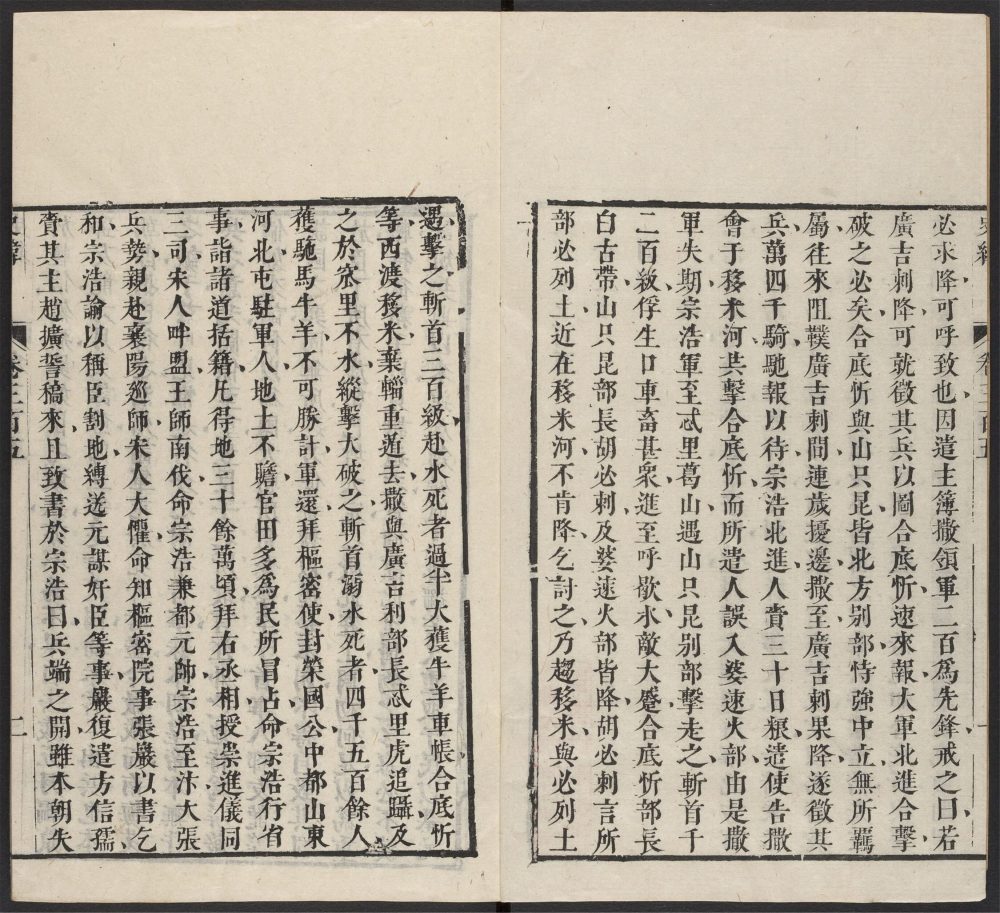 史緯
卷三百五
一
必求降可呼致也因遣主簿撒領軍二百為先鋒戒之曰若
廣吉剌降可就徵其兵以圖合底忻速來報大軍北進合擊
破之必矣合底忻與山只昆皆北方別部恃強中立無所羈
屬往來阻䪁廣吉剌間連歲擾邊撒至廣吉剌果降遂徵其
兵萬四千騎馳報以待宗浩北進人賫三十日粮遣使告撒
會于移米河共擊合底忻而所遣人誤入婆速火部由是撒
軍失期宗浩軍至忒里葛山遇山只昆別部擊走之斬首千
二百級俘生口車畜甚衆進至呼歇水敵大蹙合底忻部長
白古帶山只昆部長胡必剌及婆速火部皆降胡必剌言所
部必列土近在移米河不肯降乞討之乃趨移米與必列土
遇擊之斬首三百級赴水死者過半大獲牛羊車帳合底忻
等西渡移米棄輜重遁去撒與廣吉利部長忒里虎追躡及
之於窊里不水縱擊大破之斬首溺水死者四千五百餘人
獲駞馬牛羊不可勝計軍還拜樞密使封榮國公中都山東
河北屯駐軍人地土不贍官田多為民所冒占命宗浩行省
事詣諸道括籍凡得地三十餘萬頃拜右丞相授崇進儀同
三司宋人畔盟王師南伐命宗浩兼都元帥宗浩至汴大張
兵勢親赴襄陽巡師宋人大懼命知樞密院事張巖以書乞
和宗浩諭以稱臣割地縛送元謀奸臣等事巖復遣方信孺
賫其主趙擴誓稿來且致書於宗浩曰兵端之開雖本朝失
史緯
卷三百五
二